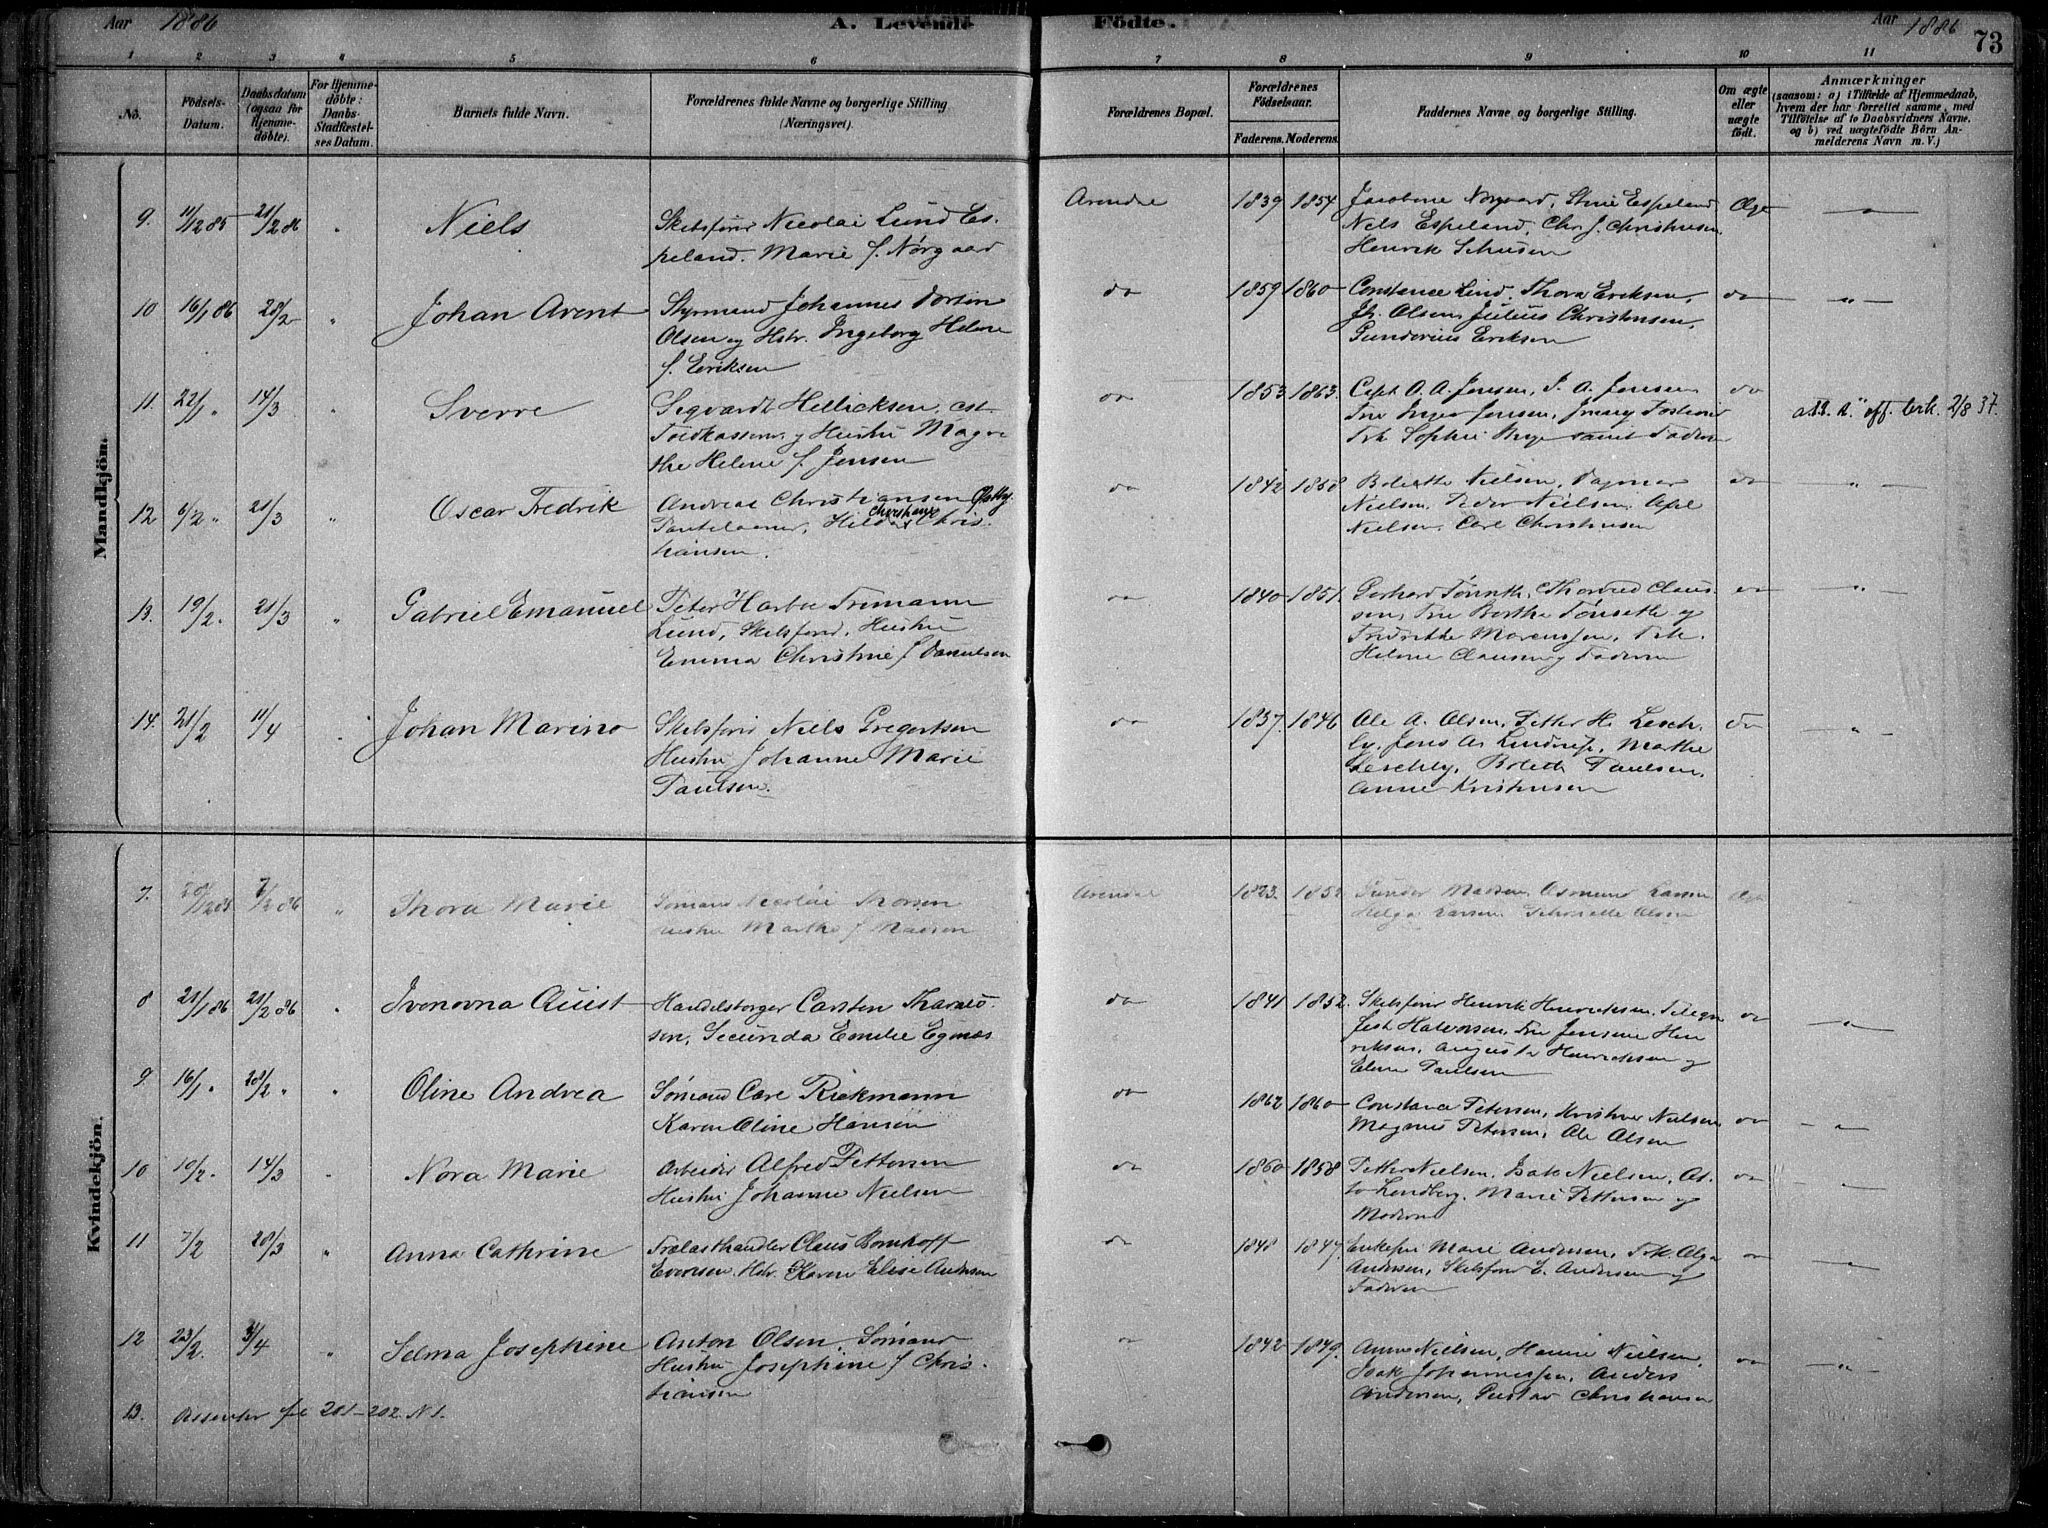 Aar 1886 A. Levende Födte. Aar 1886 73
1 2 3 4 5 6 7 8 9 10 11
No. Födsels-Datum. Daabsdatum (ogsaa for Hjemmedöbte). For Hjemmedöbte: Daabs-Stadfæstelses Datum. Barnets fulde Navn. Forældrenes fulde Navne og borgerlige Stilling (Næringsvei). Forældrenes Bopæl. Forældrenes Födselsaar. Faderens. Moderens. Faddernes Navne og borgerlige Stilling. Om ægte eller uægte födt. Anmærkninger (saasom: a) i Tilfælde af Hjemmedaab, hvem der har forrettet samme, med Tilföielse af to Daabsvidners Navne. og b) ved uægtefödte Börn Anmelderens Navn m. V.)
Mandkjön.
9. 11/12 85 21/2 86 " Niels Skibsfører Nicolai Lund Es- Arendal 1839 1854 Jacobine Nørgaard, Stine Espeland Ægte — " —
peland. Marie f. Nørgaard Niels Espeland, Chr. J. Christensen
Henrik
10 16/1 86 28/2 " Johan Arent Styrmand Johannes do 1859 1860 Constance Lind. Thora Eriksen, do — " —
Olsen og Hstr. Ingeborg Helene Jh. Olsen, Julius Christensen,
f. Eriksen Gunderius Eriksen
11. 22/1 " 14/3 " Sverre Segvardt Hellicksen, do 1853 1863. Capt A. A. Jensen, P. A. Jensen do att. u. off. brk. 2/8 37.
Toldkasserer og Hustru Magre- Fru Inger Jensen, Jenny
the Helene f. Jensen Frk Sophie samt Faderen
12 6/2 " 21/3 " Oscar Fredrik Andreas Christiansen Østby. do 1842 1858 Bolette Nielsen, Dagmar do — " —
Christiane
Hilda Chris- Nielsen, Peder Nielsen, Axel
tiansen. Nielsen, Carl Christensen
13. 19/2. 21/3 " Gabriel Emanuel Peter Harboe Frimann do 1840 1851. Gerhard Tønseth, Thorvald Claus- do — " —
Lund, Skibsfører. Hustru sen, Fru Berthe Tønseth og
Emma Christine f Danielsen Fredrikke Morenssen, Frk.
Helene Clausen og Faderen
14. 21/2 11/4 " Johan Marino Skibsfører Niels Gregertsen do 1837. 1846 Ole A. Olsen, Petter H. Lesch- do — " —
Hustru Johanne Marie ly, Jens As. Mathe
Paulsen. Leschly, Bolette Paulsen,
Anne Kristensen
Kvindekjön.
7. 20/12 85 7/2 86 " Thora Marie Sømand Nicolai Thorsen Arendal 1823. 1852 Gunder Madsen Osmund Larsen Ægte
Hustru Marthe f Madsen Helga Larsen. Olsen
8 21/1 86 21/2 86 " Ivenovna Quist Handelsborger Carsten Tharald- do 1841 1852. Skibsfører Henrik Henriksen, Telegra- do — " —
sen, Secunda Emilie Egenæs fist Halvorsen, Fru Jensine Hen-
riksen, Augusta Henriksen og
Elene Paulsen
9 16/1 " 28/2 " " Oline Andrea Sømand Carl Rickmann do 1862 1860 Constance Petersen, Kristine Nielsen, do — " —
Karen Oline Hansen Magnus Petersen, Ole Olsen
10 10/2. 14/3 " Nora Marie Arbeider Alfred Pettersen do 1860 1858 Petter Nielsen, Isak Nielsen, As-
Hustru Johanne Nielsen ta Lundberg. Marie Pettersen og do — " —
Moderen
11 7/2 28/3 " Anna Cathrine Trælasthandler Claus Bomhoff do 1848 1847. Enkefru Marie Andersen, Frk Olga do — " —
Evensen. Hstr. Karen Elise Andersen Andersen, Skibsfører E. Andersen og
Faderen
12 23/2. 3/4 " Selma Josephine Anton Olsen, Sømand do 1842 1849. Anne Nielsen, Hanne Nielsen, do — " —
Hustru Josephine f Chris- Isak Johannessen, Anders
tiansen Andersen, Gustav Christiansen
13. Dissenter fol 201-202. N 1.